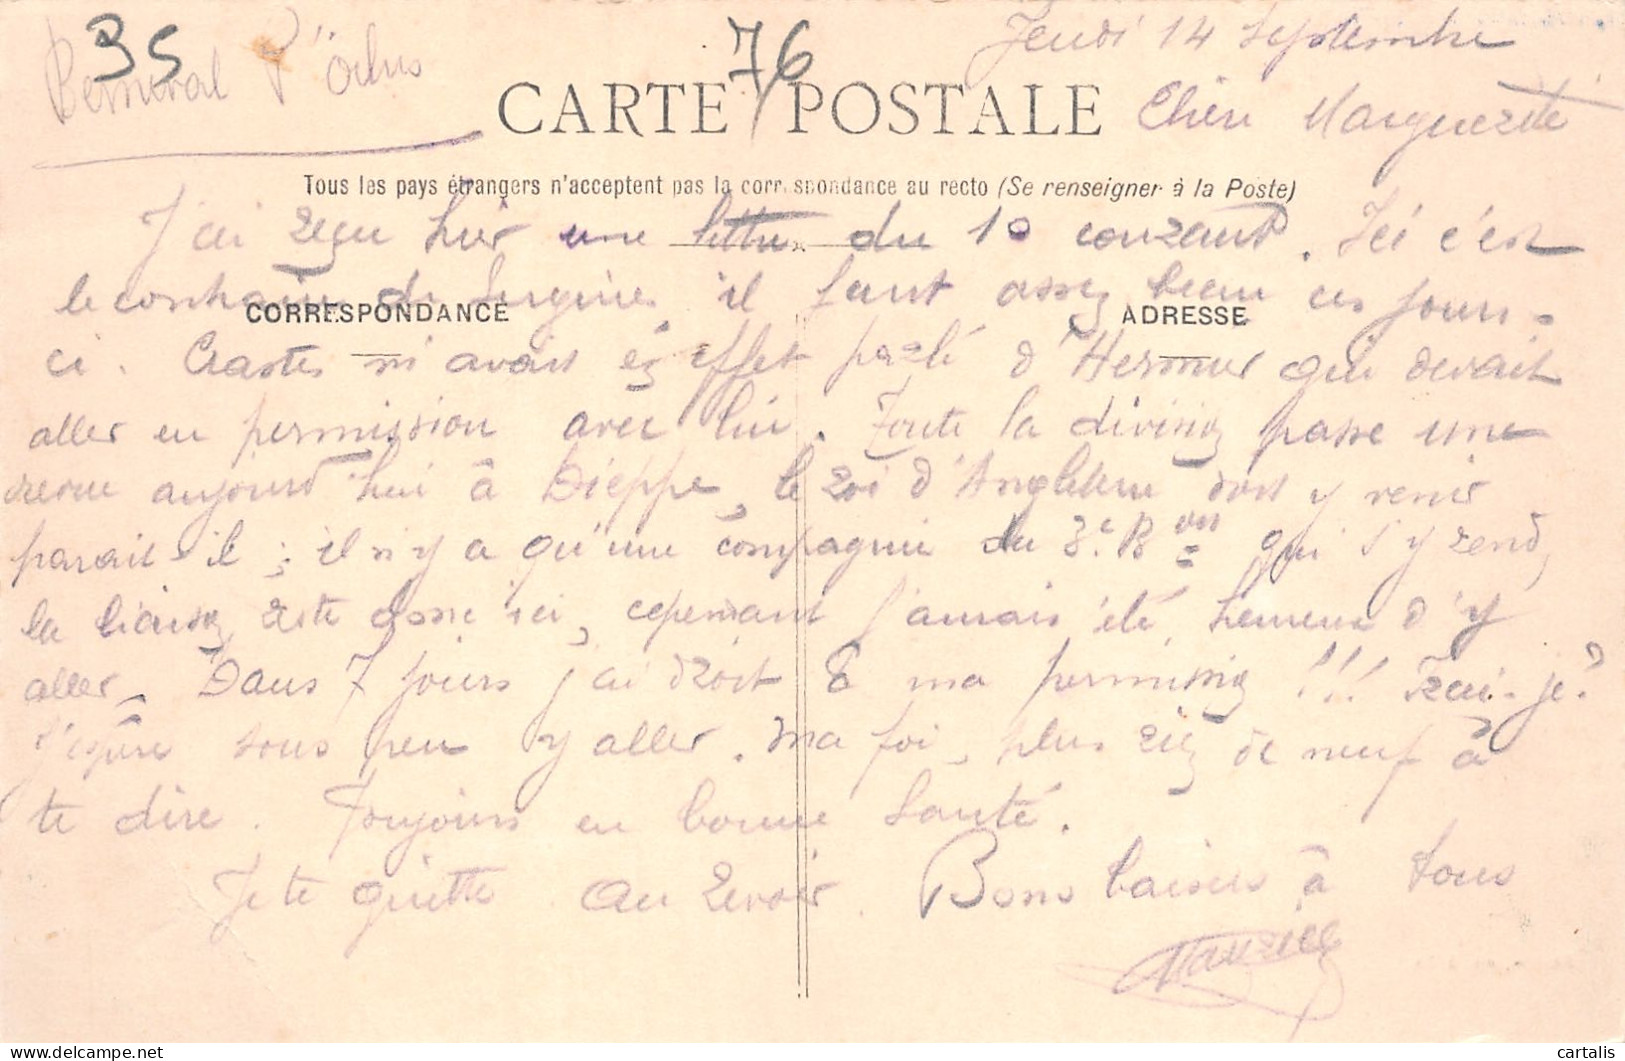 35
76
Jeudi 14 Septembre
Berneval
CARTE POSTALE
Chère Marguerite
Tous les pays étrangers n'acceptent pas la correspondance au recto (Se renseigner à la Poste)
J'ai reçu hier une lettre du 10 courant. Ici c'est
le contraire de Sergines il faut assez beau ces jours-
CORRESPONDANCE
ADRESSE
ci. m'avait en effet parlé d' qui devait
aller en permission avec lui. Toute la division passe une
revue aujourd'hui à Dieppe, le roi d'Angleterre doit y venir
parait-il ; il n'y a qu'une compagnie du Bon qui s'y rend,
la liaison reste donc ici, cependant j'aurais été heureux d'y
aller. Dans 7 jours j'ai droit à ma permission !!! Irai-je?
J'espère sous peu y aller. Ma foi, plus rien de neuf à
te dire. Toujours en bonne santé.
Je te quitte au revoir. Bons baisers à tous
Maurice
cartalis